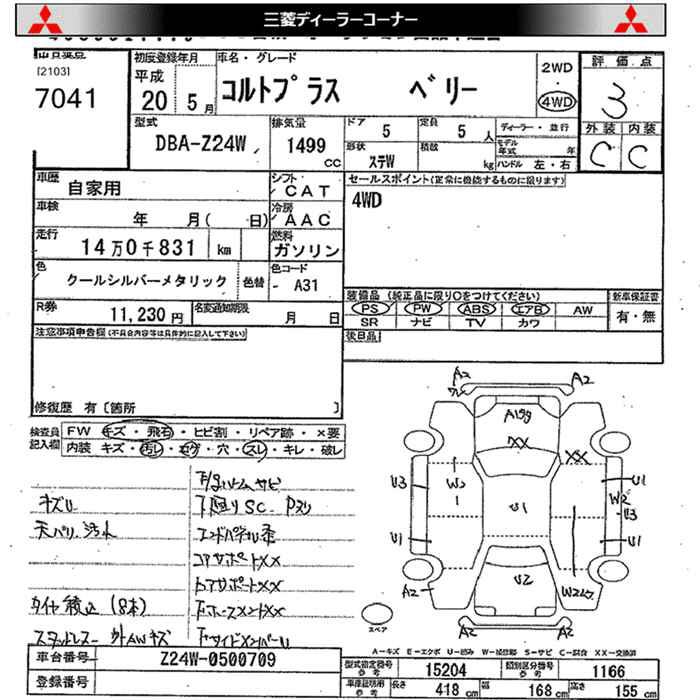 三菱ディーラーコーナー
出品受付
[2103]
7041
初度登録年月
平成
20 年 5 月
車名・グレード
コルトプラス ベリー
2WD
・
4WD
評価点
3
外装 内装
C C
型式
DBA-Z24W
排気量
1499
CC
ドア 5
定員 5 人
ディーラー・並行
形状 ステW
積載 kg
モデル年式 年
ハンドル 左・右
車歴 自家用
シフト CAT
セールスポイント(正常に機能するものに限ります)
4WD
車検 年 月( 日)
冷房 AAC
走行 14万0千831 km
燃料 ガソリン
色 クールシルバーメタリック 色替
色コード A31
装備品 (純正品に限り○をつけてください)
新車保証書
PS PW ABS エアB AW
SR ナビ TV カワ
有・無
R券 11,230 円
名変通知期限 月 日
後日品
注意事項申告欄(不具合内容等は具体的に記入して下さい)
修復歴 有 [箇所 ]
検査員記入欄
FW キズ・飛石・ヒビ割・リペア跡・×要
内装 キズ・汚レ・コゲ・穴・スレ・キレ・破レ
下廻りSC
キズU
天バリ 汚れ
エンドパネル
コアサポートXX
タイヤ積込 (8本)
スタッドレス 外AWキズ
A2 A2
XX XX
U3 U1
W2
U3
U1 U1 U1
U2
A2
A2 A2
スペア
A-キズ E-エクボ U-凹み W-補修跡 S-サビ C-腐食 XX-交換済
車台番号 Z24W-0500709
登録番号
型式指定番号 参考 15204
類別区分番号 参考 1166
車庫証明用 参考 長さ 418 cm 幅 168 cm 高さ 155 cm